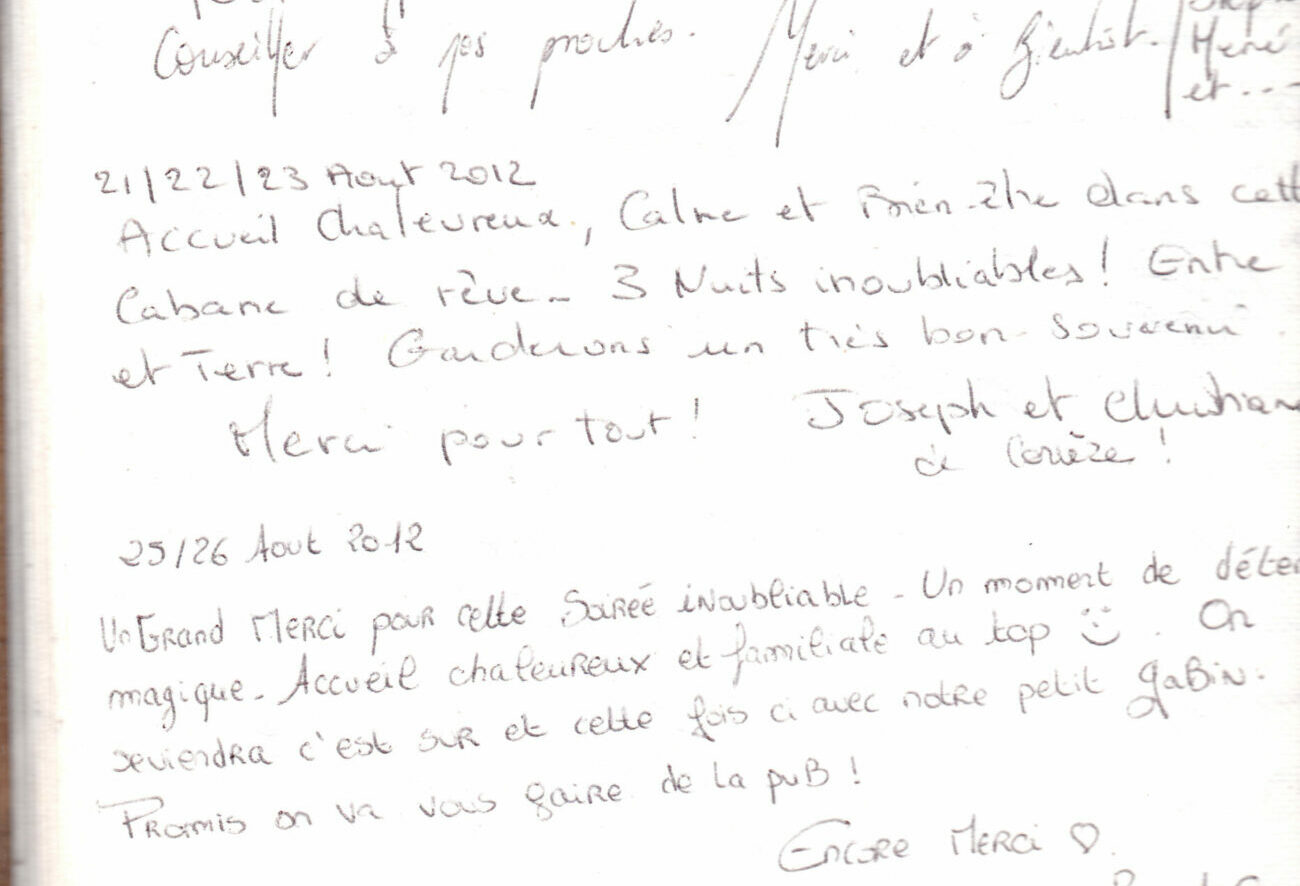 Conseiller à nos proches. Merci et à Bientôt.
et...
21/22/23 Aout 2012
Accueil Chaleureux, Calme et Bien-être dans cett
Cabane de rêve_ 3 Nuits inoubliables! Entre
et Terre! Garderons un très bon souvenir.
Merci pour tout! Joseph et Christiane
de Corrèze!
25/26 Aout 2012
Un Grand Merci pour cette Soirée inoubliable - Un moment de déten
magique. Accueil chaleureux et familiale au top. On
reviendra c'est sur et cette fois ci avec notre petit gabin.
Promis on va vous faire de la pub!
Encore Merci ♡.